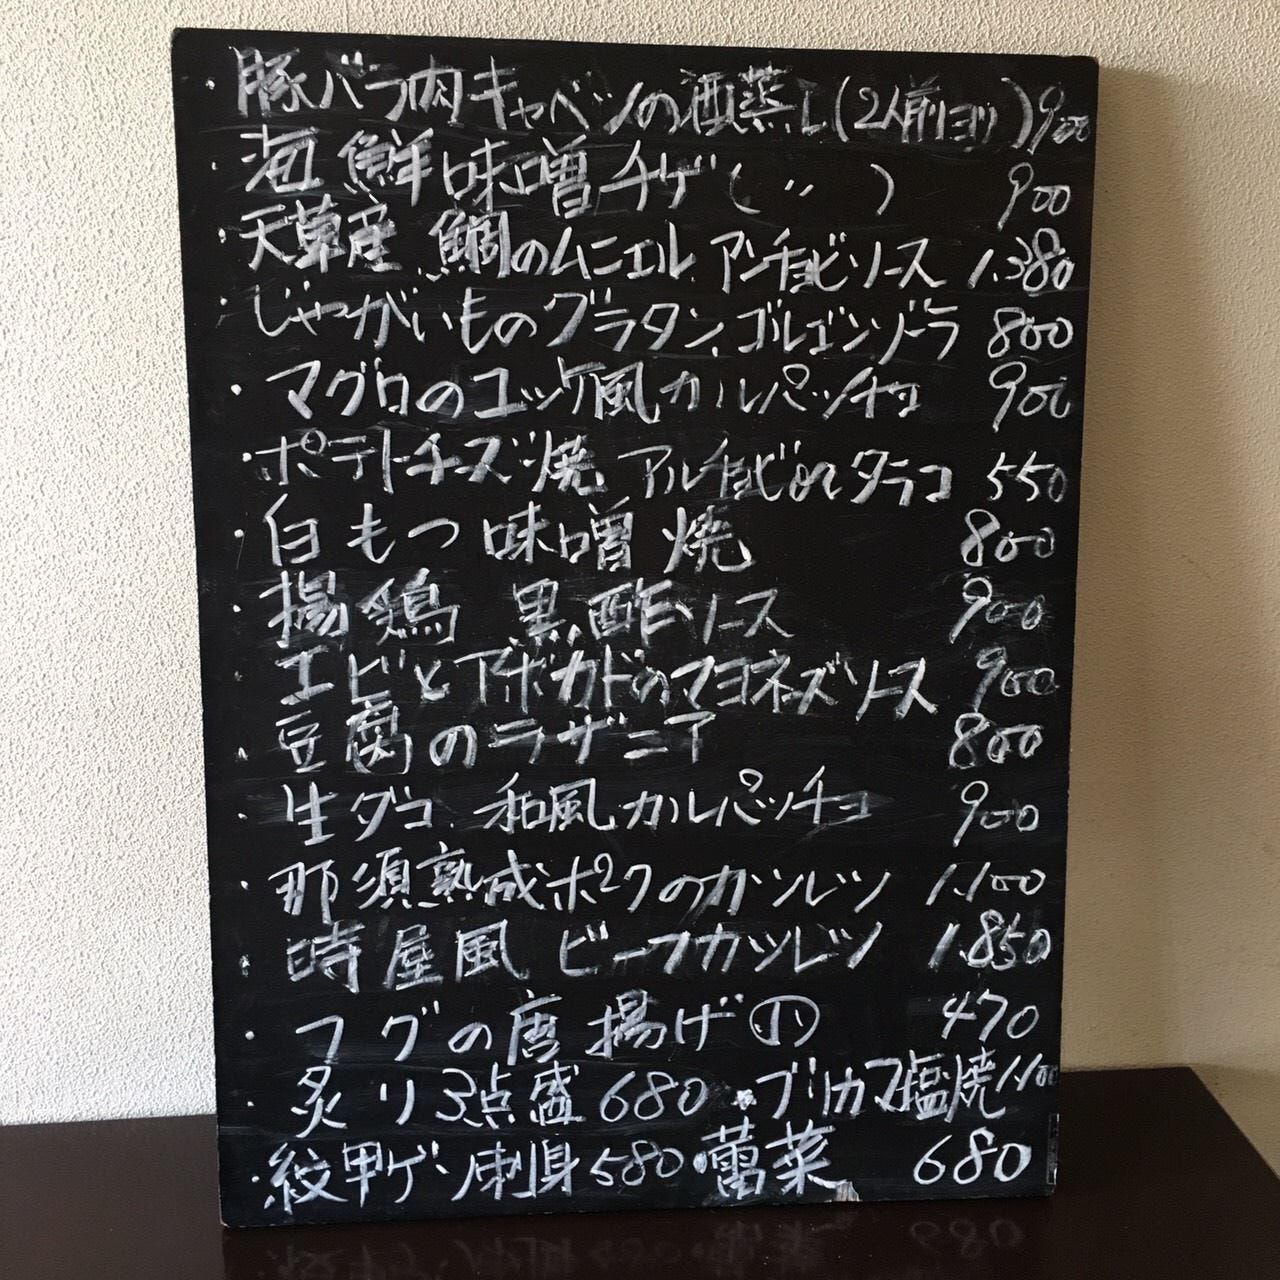 ・豚バラ肉キャベツの酒蒸し(2人前ヨリ)900
・海鮮味噌チゲ(〃)900
・天草産 鯛のムニエル アンチョビソース 1.380
・じゃがいものグラタン、ゴルゴンゾーラ 800
・マグロのユッケ風カルパッチョ 900
・ポテトチーズ焼 アンチョビorタラコ 550
・白もつ味噌焼 800
・揚鶏 黒酢ソース 900
・エビとアボカドのマヨネーズソース 900
・豆腐のラザニア 800
・生ダコ 和風カルパッチョ 900
・那須熟成ポークのカツレツ 1.100
・時屋風 ビーフカツレツ 1.850
・フグの唐揚げ 470
・炙り3点盛 680 ・ブリカマ塩焼 1.100
・紋甲ゲソ刺身 580 ・蕾菜 680